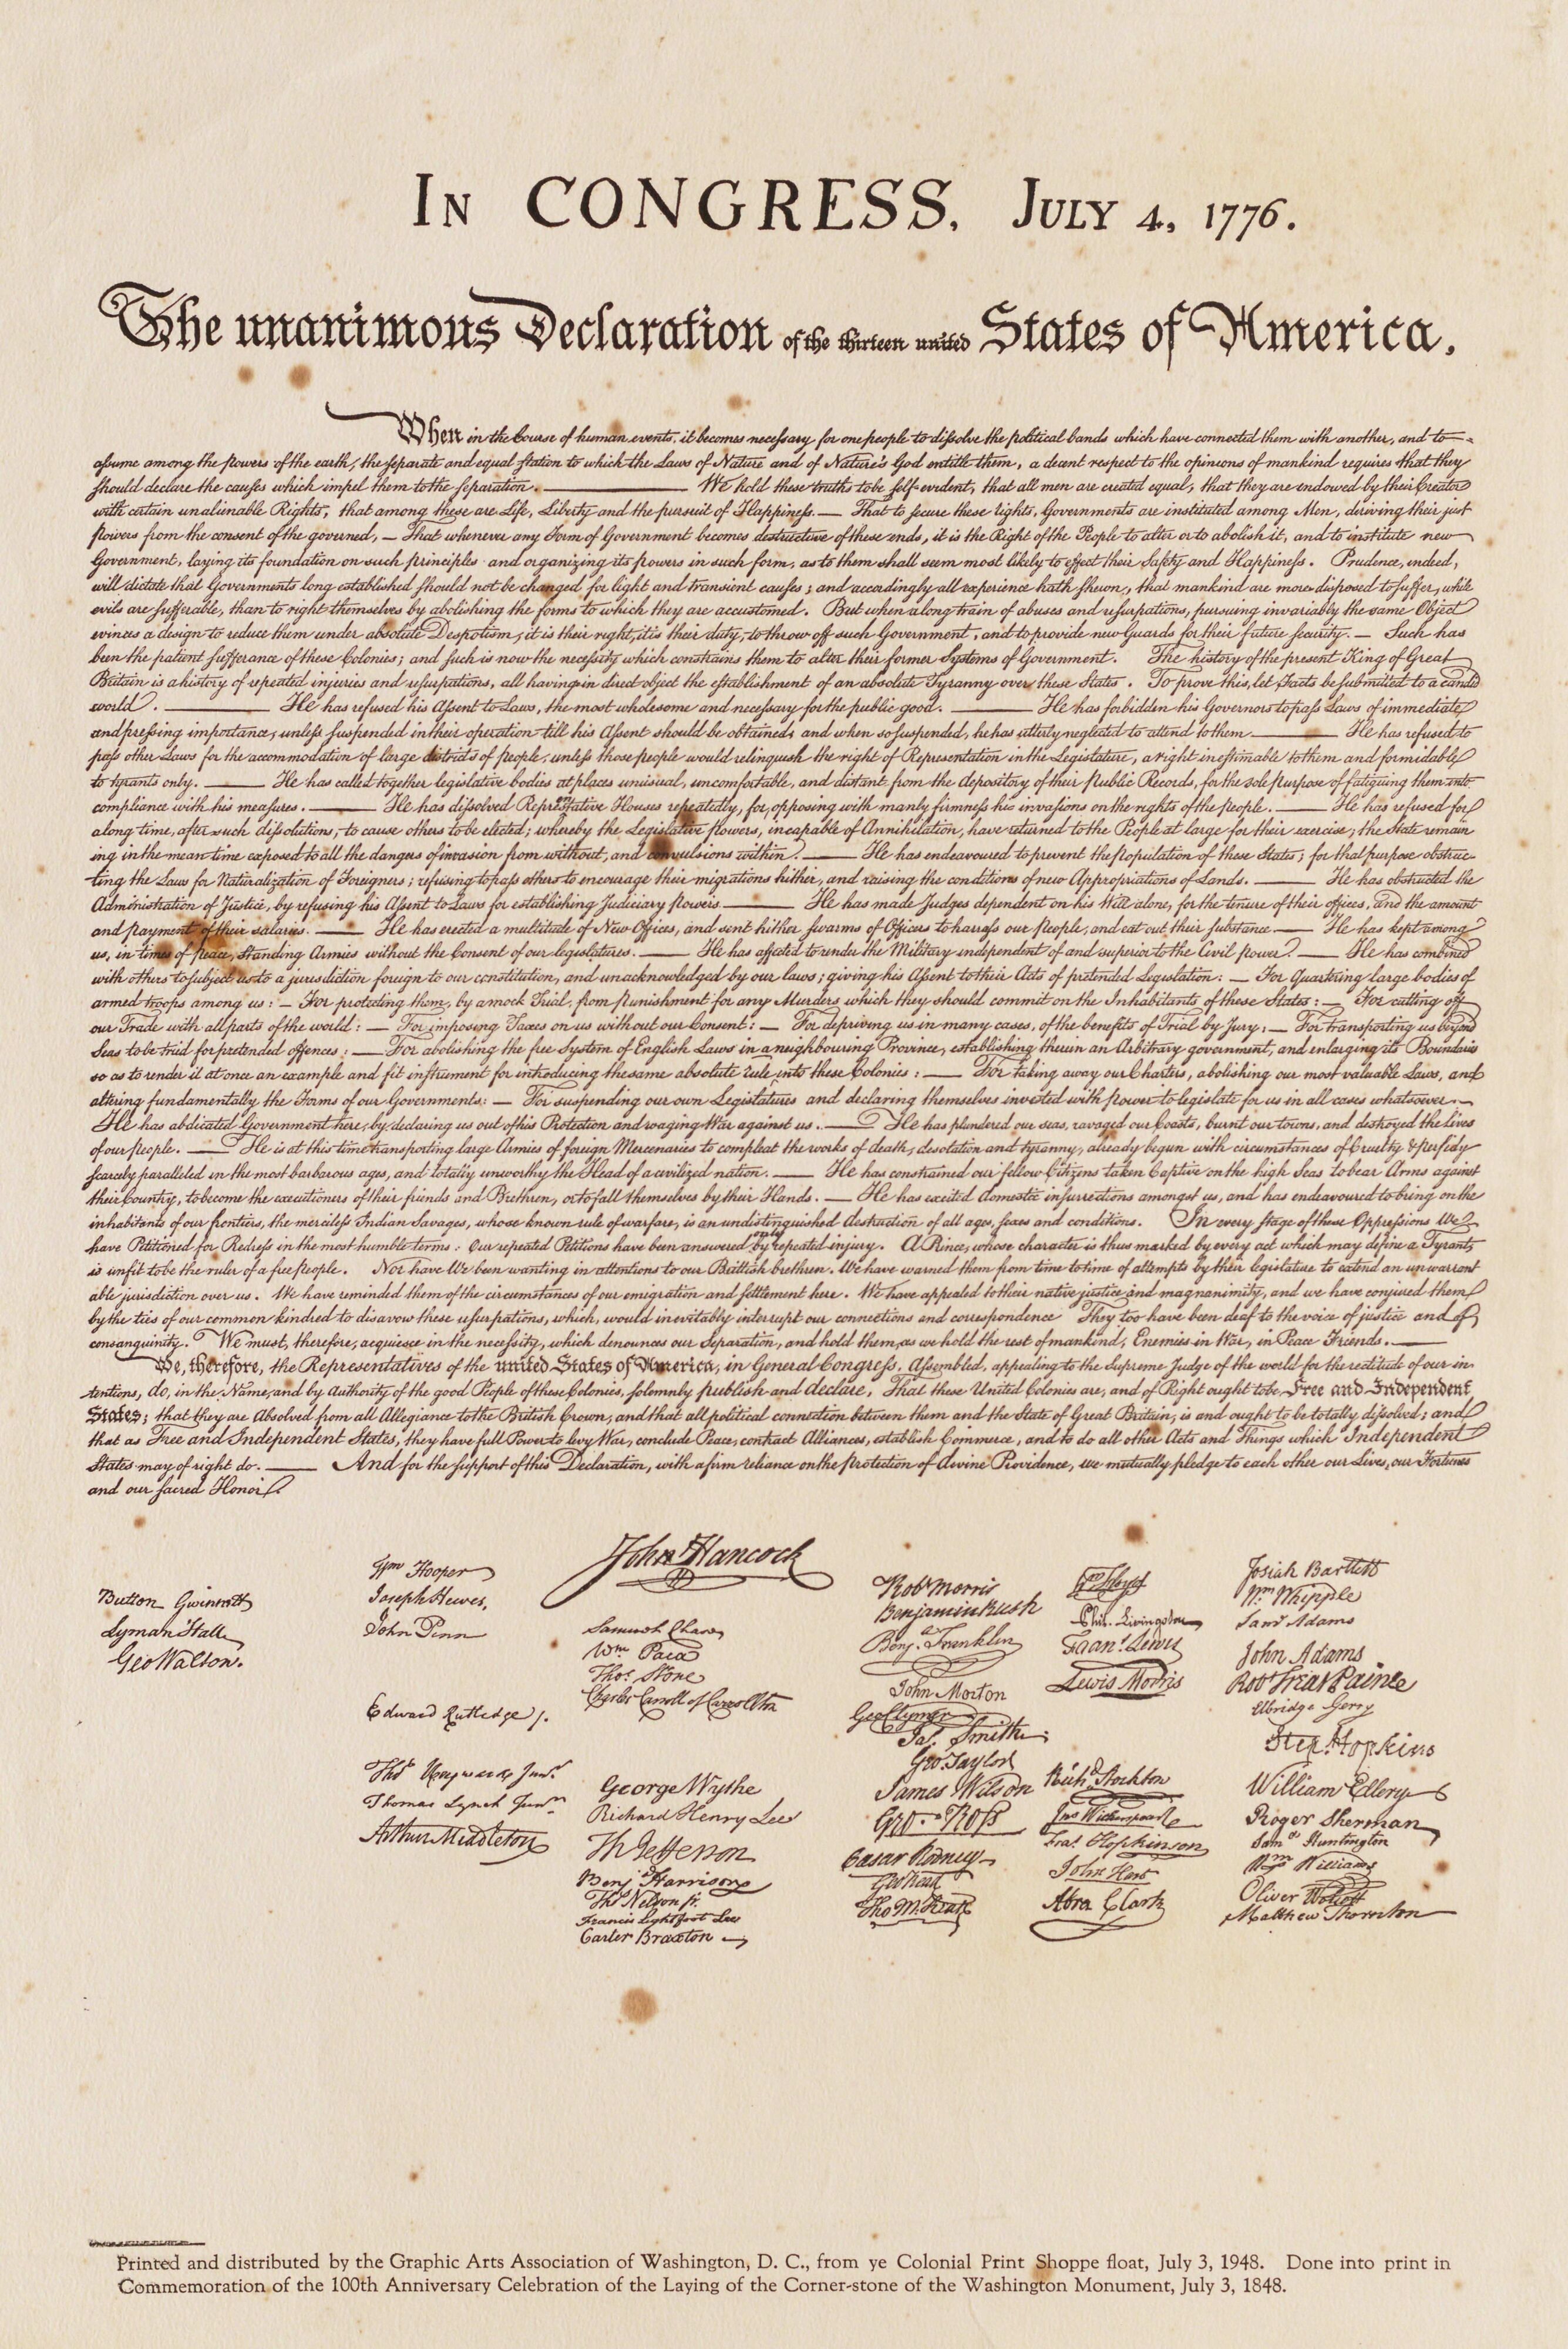 In CONGRESS, July 4, 1776.
The unanimous Declaration of the thirteen united States of America.
When in the Course of human events, it becomes necessary for one people to dissolve the political bands which have connected them with another, and to
assume among the powers of the earth, the separate and equal station to which the Laws of Nature and of Nature's God entitle them, a decent respect to the opinions of mankind requires that they
should declare the causes which impel them to the separation. — We hold these truths to be self-evident, that all men are created equal, that they are endowed by their Creator
with certain unalienable Rights, that among these are Life, Liberty and the pursuit of Happiness. — That to secure these rights, Governments are instituted among Men, deriving their just
powers from the consent of the governed, — That whenever any Form of Government becomes destructive of these ends, it is the Right of the People to alter or to abolish it, and to institute new
Government, laying its foundation on such principles and organizing its powers in such form, as to them shall seem most likely to effect their Safety and Happiness. Prudence, indeed,
will dictate that Governments long established should not be changed for light and transient causes; and accordingly all experience hath shewn, that mankind are more disposed to suffer, while
evils are sufferable, than to right themselves by abolishing the forms to which they are accustomed. But when a long train of abuses and usurpations, pursuing invariably the same Object
evinces a design to reduce them under absolute Despotism, it is their right, it is their duty, to throw off such Government, and to provide new Guards for their future security. — Such has
been the patient sufferance of these Colonies; and such is now the necessity which constrains them to alter their former Systems of Government. The history of the present King of Great
Britain is a history of repeated injuries and usurpations, all having in direct object the establishment of an absolute Tyranny over these States. To prove this, let Facts be submitted to a candid
world. — He has refused his Assent to Laws, the most wholesome and necessary for the public good. — He has forbidden his Governors to pass Laws of immediate
and pressing importance, unless suspended in their operation till his Assent should be obtained; and when so suspended, he has utterly neglected to attend to them. — He has refused to
pass other Laws for the accommodation of large districts of people, unless those people would relinquish the right of Representation in the Legislature, a right inestimable to them and formidable
to tyrants only. — He has called together legislative bodies at places unusual, uncomfortable, and distant from the depository of their Public Records, for the sole purpose of fatiguing them into
compliance with his measures. — He has dissolved Representative Houses repeatedly, for opposing with manly firmness his invasions on the rights of the people. — He has refused for
a long time, after such dissolutions, to cause others to be elected; whereby the Legislative powers, incapable of Annihilation, have returned to the People at large for their exercise; the State remain
ing in the mean time exposed to all the dangers of invasion from without, and convulsions within. — He has endeavoured to prevent the population of these States; for that purpose obstruc-
ting the Laws for Naturalization of Foreigners; refusing to pass others to encourage their migrations hither, and raising the conditions of new Appropriations of Lands. — He has obstructed the
Administration of Justice, by refusing his Assent to Laws for establishing Judiciary powers. — He has made Judges dependent on his Will alone, for the tenure of their offices, and the amount
and payment of their salaries. — He has erected a multitude of New Offices, and sent hither swarms of Officers to harrass our people, and eat out their substance. — He has kept among
us, in times of peace, Standing Armies without the Consent of our legislatures. — He has affected to render the Military independent of and superior to the Civil power. — He has combined
with others to subject us to a jurisdiction foreign to our constitution, and unacknowledged by our laws; giving his Assent to their Acts of pretended Legislation: — For Quartering large bodies of
armed troops among us: — For protecting them, by a mock Trial, from punishment for any Murders which they should commit on the Inhabitants of these States: — For cutting off
our Trade with all parts of the world: — For imposing Taxes on us without our Consent: — For depriving us in many cases, of the benefits of Trial by Jury: — For transporting us beyond
Seas to be tried for pretended offences: — For abolishing the free System of English Laws in a neighbouring Province, establishing therein an Arbitrary government, and enlarging its Boundaries
so as to render it at once an example and fit instrument for introducing the same absolute rule into these Colonies: — For taking away our Charters, abolishing our most valuable Laws, and
altering fundamentally the Forms of our Governments: — For suspending our own Legislatures and declaring themselves invested with power to legislate for us in all cases whatsoever. —
He has abdicated Government here, by declaring us out of his Protection and waging War against us. — He has plundered our seas, ravaged our Coasts, burnt our towns, and destroyed the lives
of our people. — He is at this time transporting large Armies of foreign Mercenaries to compleat the works of death, desolation and tyranny, already begun with circumstances of Cruelty & perfidy
scarcely paralleled in the most barbarous ages, and totally unworthy the Head of a civilized nation. — He has constrained our fellow Citizens taken Captive on the high Seas to bear Arms against
their Country, to become the executioners of their friends and Brethren, or to fall themselves by their Hands. — He has excited domestic insurrections amongst us, and has endeavoured to bring on the
inhabitants of our frontiers, the merciless Indian Savages, whose known rule of warfare, is an undistinguished destruction of all ages, sexes and conditions. In every stage of these Oppressions We
have Petitioned for Redress in the most humble terms: Our repeated Petitions have been answered only by repeated injury. A Prince, whose character is thus marked by every act which may define a Tyrant,
is unfit to be the ruler of a free people. Nor have We been wanting in attentions to our Brittish brethren. We have warned them from time to time of attempts by their legislature to extend an unwarrant
able jurisdiction over us. We have reminded them of the circumstances of our emigration and settlement here. We have appealed to their native justice and magnanimity, and we have conjured them
by the ties of our common kindred to disavow these usurpations, which, would inevitably interrupt our connections and correspondence They too have been deaf to the voice of justice and of
consanguinity. We must, therefore, acquiesce in the necessity, which denounces our Separation, and hold them, as we hold the rest of mankind, Enemies in War, in Peace Friends. —
We, therefore, the Representatives of the united States of America, in General Congress, Assembled, appealing to the Supreme Judge of the world for the rectitude of our in
tentions, do, in the Name, and by Authority of the good People of these Colonies, solemnly publish and declare, That these United Colonies are, and of Right ought to be Free and Independent
States; that they are Absolved from all Allegiance to the British Crown, and that all political connection between them and the State of Great Britain, is and ought to be totally dissolved; and
that as Free and Independent States, they have full Power to levy War, conclude Peace, contract Alliances, establish Commerce, and to do all other Acts and Things which Independent
States may of right do. — And for the support of this Declaration, with a firm reliance on the protection of divine Providence, we mutually pledge to each other our Lives, our Fortunes
and our sacred Honor.
Button Gwinnett
Lyman Hall
Geo Walton.
Wm Hooper
Joseph Hewes,
John Penn
Edward Rutledge /.
Thos Heyward Junr.
Thomas Lynch Junr
Arthur Middleton
John Hancock
Samuel Chase
Wm Paca
Thos Stone
Charles Carroll of Carrollton
George Wythe
Richard Henry Lee
Th Jefferson
Benj Harrison
Thos Nelson jr.
Francis Lightfoot Lee
Carter Braxton
Robt Morris
Benjamin Rush
Benj. Franklin
John Morton
Geo Clymer
Jas. Smith
Geo. Taylor
James Wilson
Geo. Ross
Caesar Rodney
Geo Read
Tho M:Kean
Wm Floyd
Phil. Livingston
Frans. Lewis
Lewis Morris
Richd. Stockton
Jno Witherspoon
Fras. Hopkinson
John Hart
Abra Clark
Josiah Bartlett
Wm. Whipple
Saml Adams
John Adams
Robt Treat Paine
Elbridge Gerry
Step. Hopkins
William Ellery
Roger Sherman
Saml Huntington
Wm Williams
Oliver Wolcott
Matthew Thornton
Printed and distributed by the Graphic Arts Association of Washington, D. C., from ye Colonial Print Shoppe float, July 3, 1948. Done into print in
Commemoration of the 100th Anniversary Celebration of the Laying of the Corner-stone of the Washington Monument, July 3, 1848.